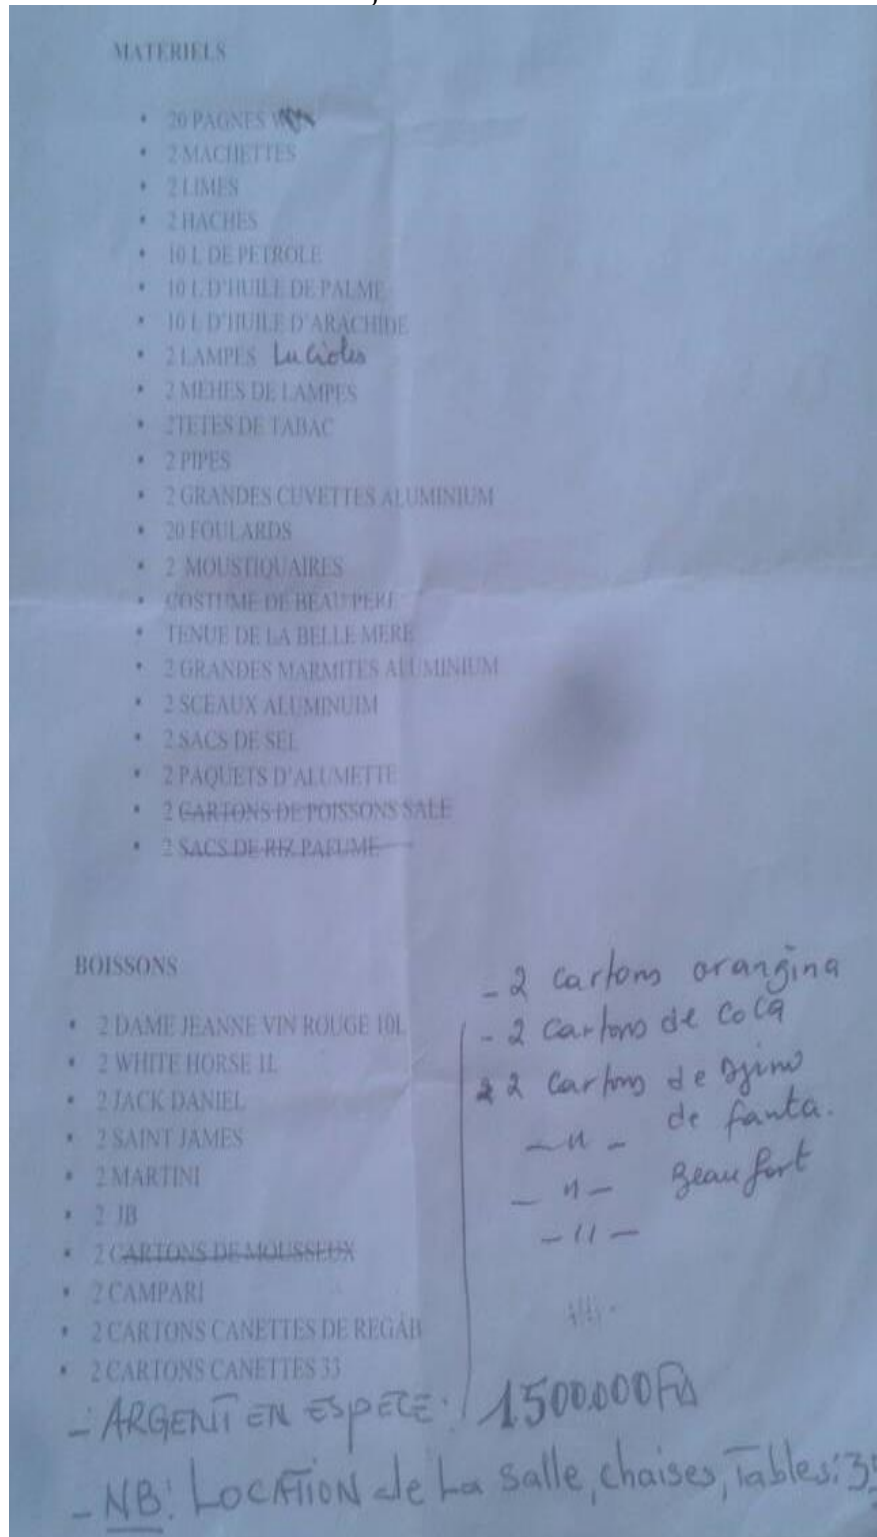 MATERIELS
• 20 PAGNES
• 2 MACHETTES
• 2 LIMES
• 2 HACHES
• 10 L DE PETROLE
• 10 L D'HUILE DE PALME
• 10 L D'HUILE D'ARACHIDE
• 2 LAMPES Lucioles
• 2 MEHES DE LAMPES
• 2TETES DE TABAC
• 2 PIPES
• 2 GRANDES CUVETTES ALUMINIUM
• 20 FOULARDS
• 2 MOUSTIQUAIRES
• COSTUME DE BEAU PERE
• TENUE DE LA BELLE MERE
• 2 GRANDES MARMITES ALUMINIUM
• 2 SCEAUX ALUMINUIM
• 2 SACS DE SEL
• 2 PAQUETS D'ALUMETTE
• 2 CARTONS DE POISSONS SALE
• 2 SACS DE RIZ PAFUME
BOISSONS
• 2 DAME JEANNE VIN ROUGE 10L
• 2 WHITE HORSE 1L
• 2 JACK DANIEL
• 2 SAINT JAMES
• 2 MARTINI
• 2 JB
• 2 CARTONS DE MOUSSEUX
• 2 CAMPARI
• 2 CARTONS CANETTES DE REGAB
• 2 CARTONS CANETTES 33
- 2 Cartons orangina
- 2 Cartons de Coca
2 Cartons de Djino
- " - de fanta.
- " - Beaufort
- " -
- ARGENT EN ESPECE: 1500.000 F
- NB: LOCATION de La Salle, chaises, Tables: 3